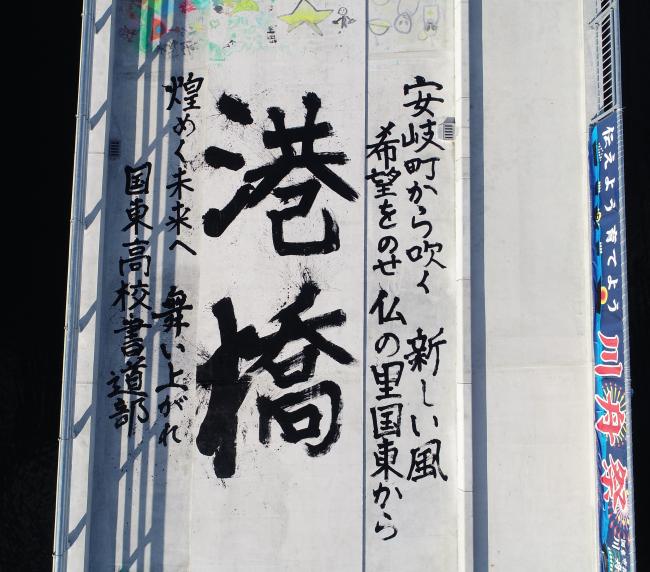 安岐町から吹く 新しい風
希望をのせ 仏の里国東から
港橋
煌めく未来へ 舞い上がれ
国東高校書道部
伝えよう 育てよう
川舟祭